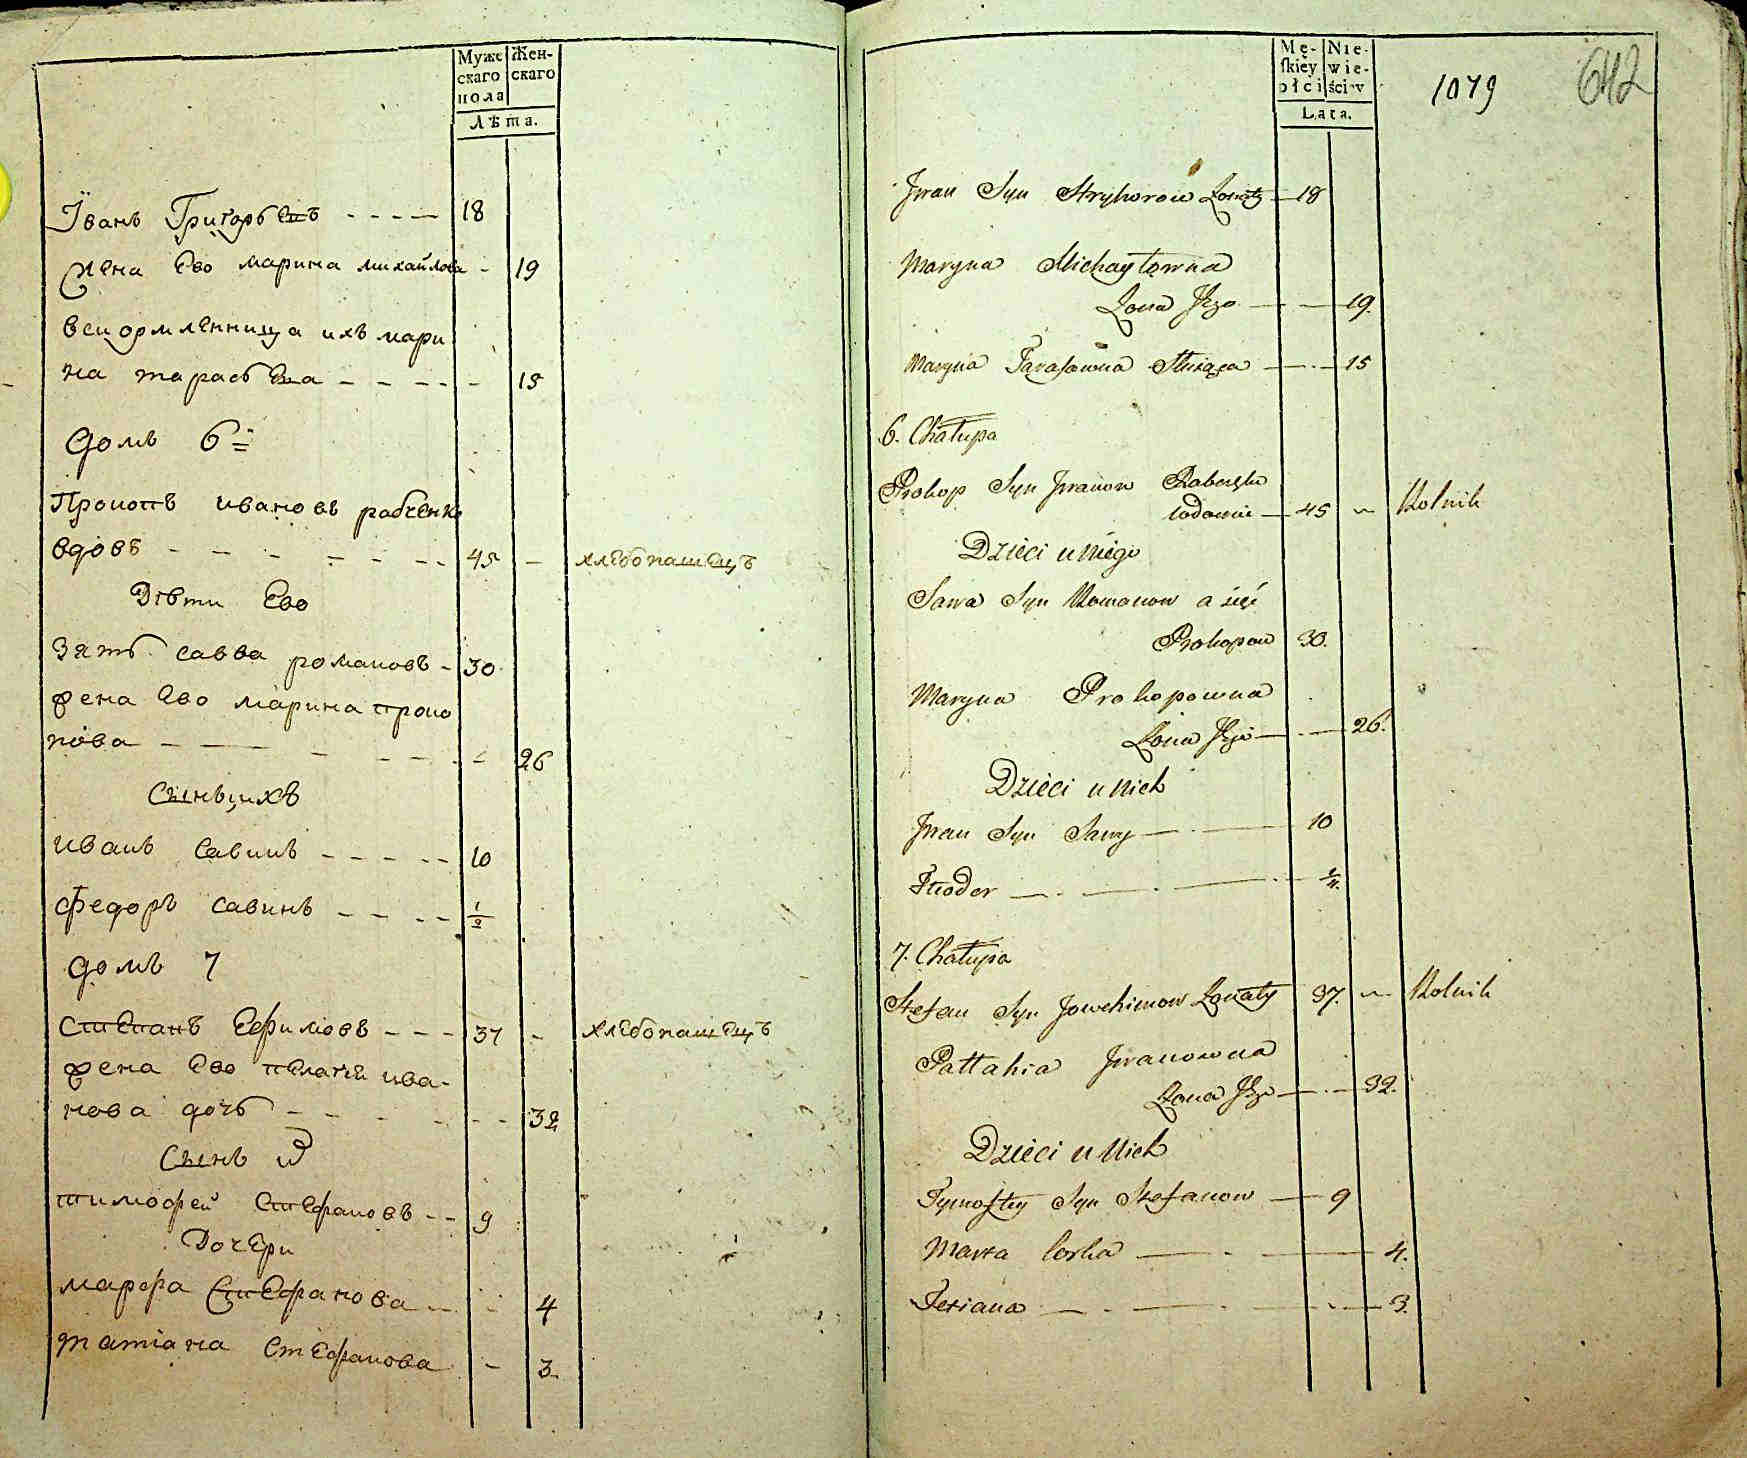 Муже
скаго
пола
Жен-
скаго
Лѣта.
Їванъ Григорьевъ - - - - 18
Жена Ево марина михайлова - 19
вскормленница ихъ мари
на тарасьева - - - - - 15
домъ 6й
Прокопъ ивановъ рабченко
вдовъ - - - - - - - 45 - хлебопашецъ
Дѣти Ево
Зять савва романовъ - 30
жена Ево марина проко
пова - - - - - - - 26
Сынъ ихъ
иванъ савинъ - - - - - 10
федоръ савинъ - - - - 1/2
домъ 7
степанъ Ефимовъ - - - 37 - хлебопашецъ
жена Ево пелагея ива-
нова дочь - - - - - - 32
Сынъ
тимофей Стефановъ - - 9
Дочери
марфа Стефанова - - - 4
татіана Стефанова - 3
Mę-
skiey
płci
Nie-
wie-
ściey
Lata.
1079
642
Jwan Syn Hryhorow Łonaty — 18
Maryna Michayłowna
Żona Jego — — 19.
Maryna Tarasowna — 15
6. Chałupa
Prokop Syn Jwanow Rabczenko
wdowiec — 45 ~ Rolnik
Dzieci u niego
Sawa Syn Romanow a zięć
Prokopow 30.
Maryna Prokopowna
Żona Jego — — 26.
Dzieci u nich
Jwan Syn Sawy — — 10
Fuodor — — —
7. Chałupa
Stefan Syn Jowchimow Łonaty 37. ~ Rolnik
Pałłahia Jwanowna
Żona Jego — — 32.
Dzieci u Nich
Tymoftey Syn Stefanow — 9
Marta Corka — — 4.
Teriana — — — 3.